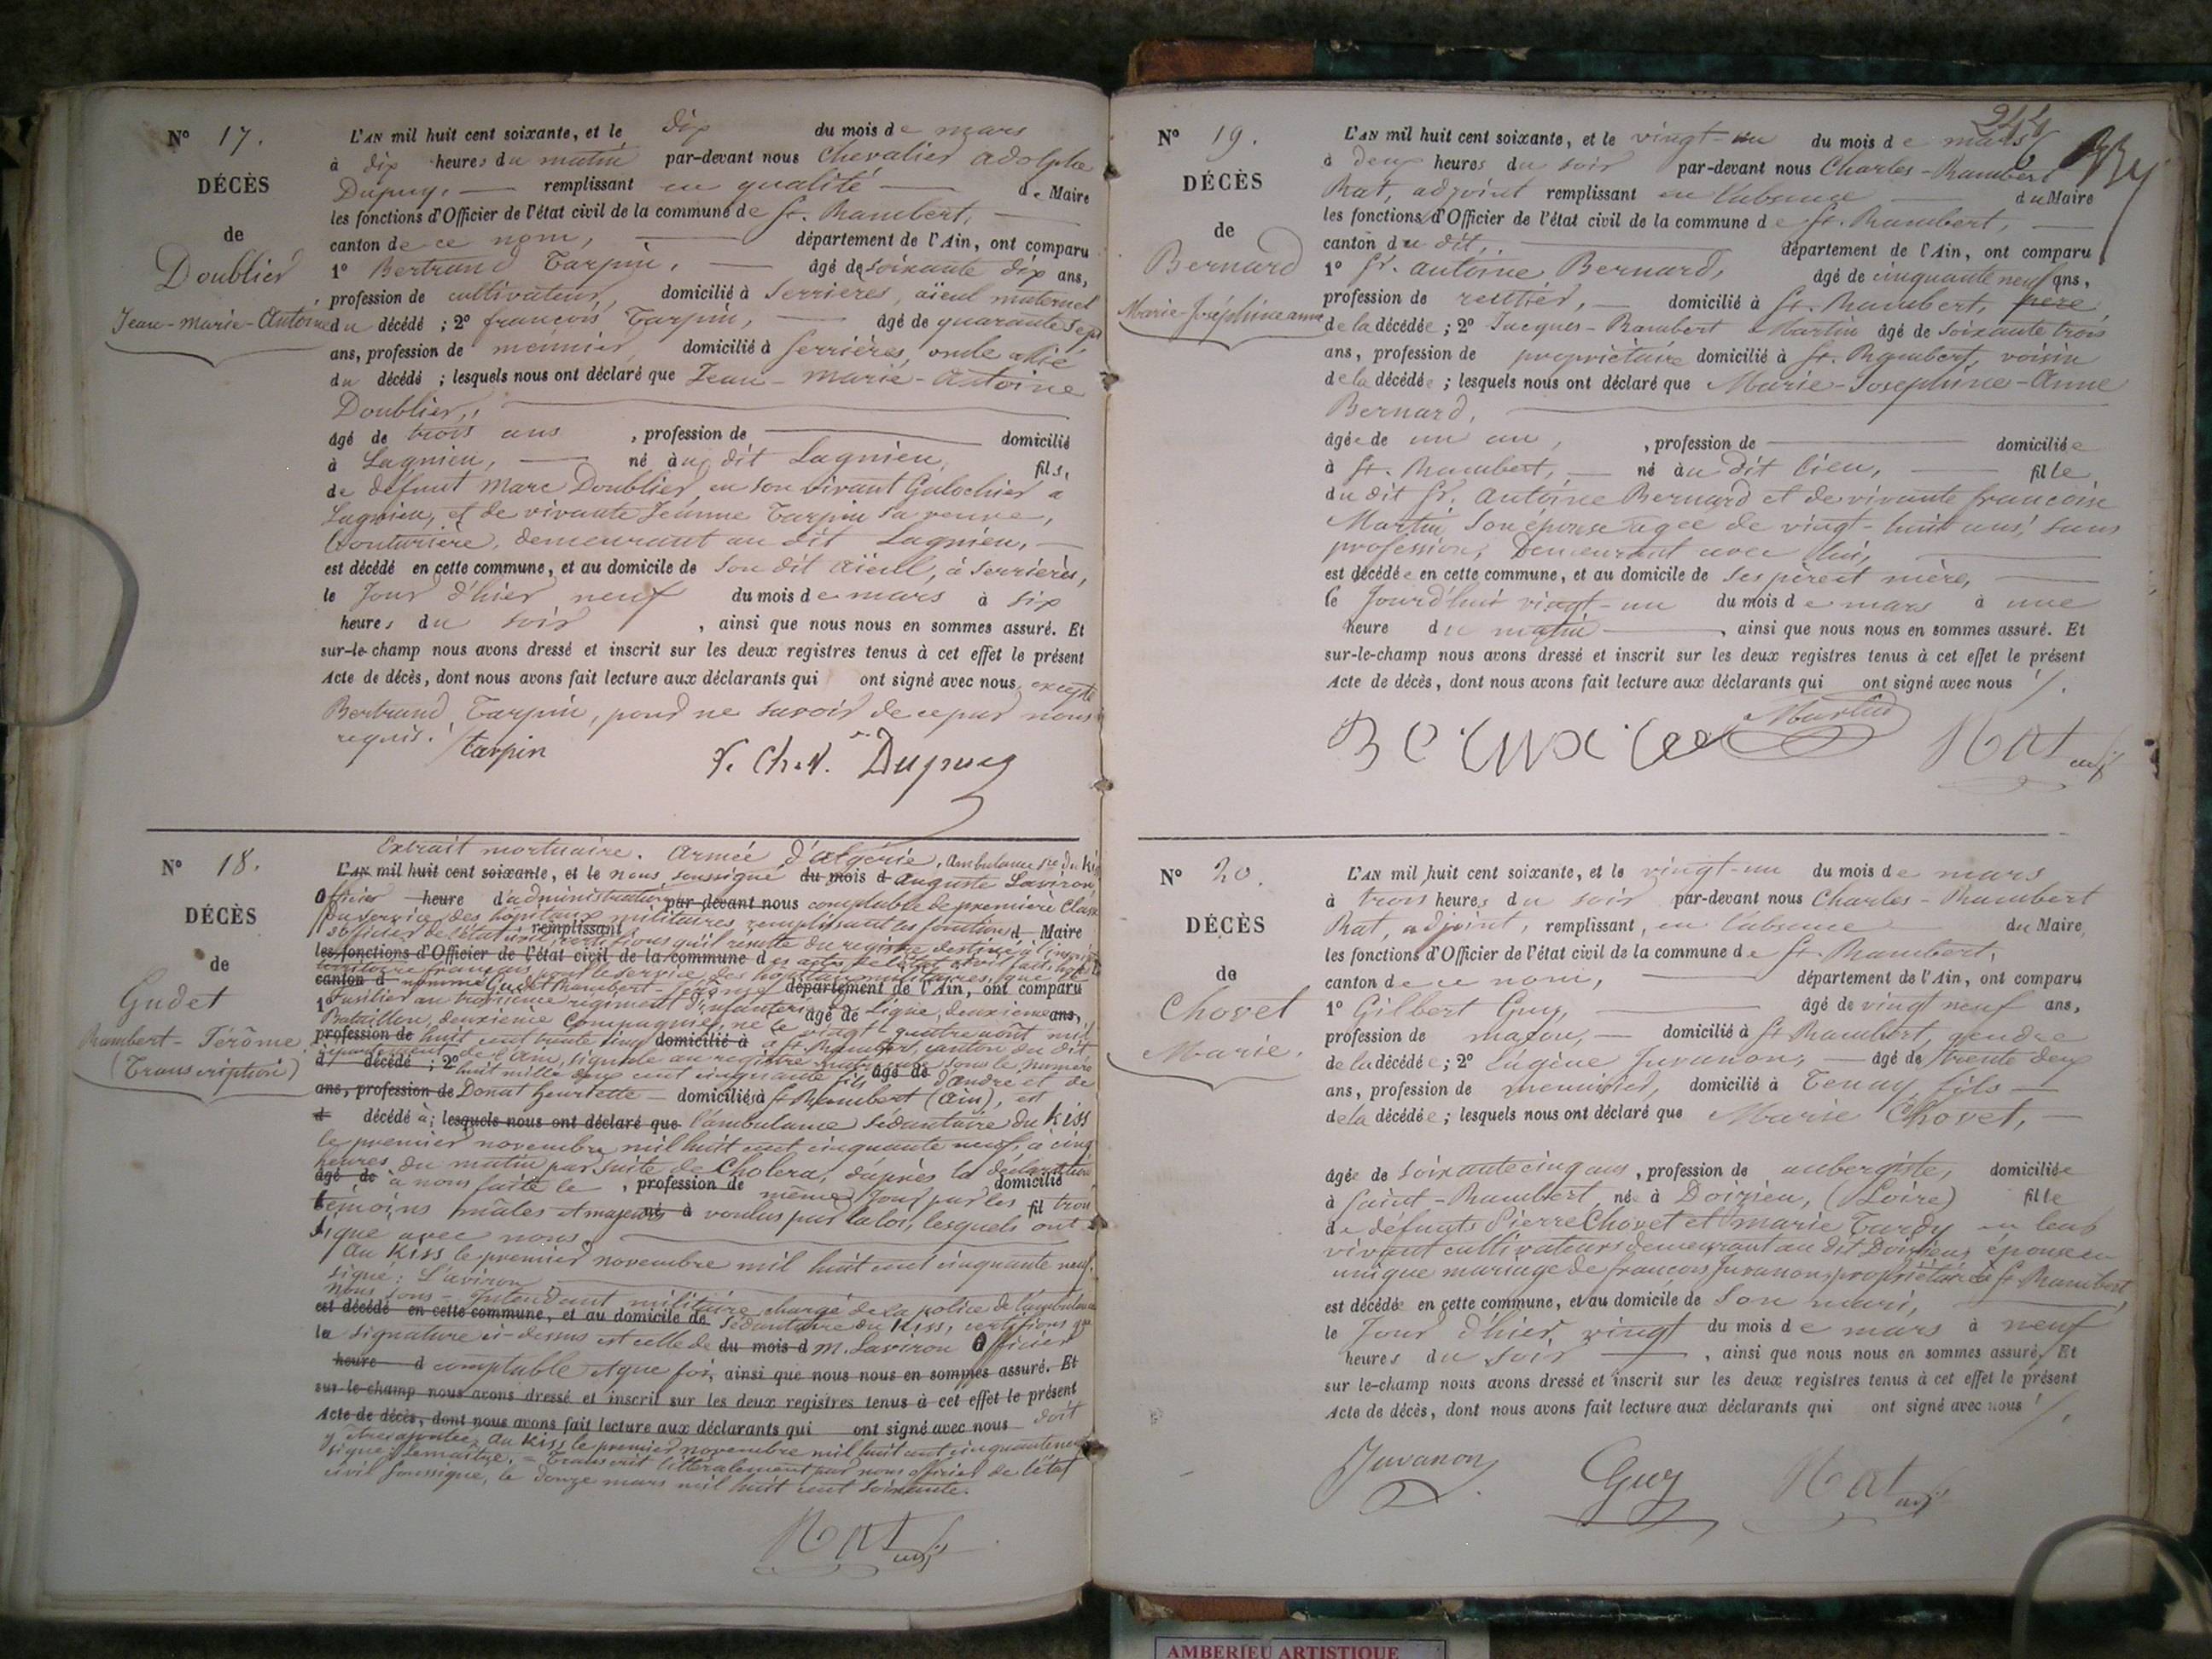 N° 17.
DÉCÈS
de
Doublier
Jean-Marie-Antoine
L'AN mil huit cent soixante, et le dix du mois de mars
à dix heures du matin par-devant nous Chevalier Adolphe
Dupuy, remplissant en qualité de Maire
les fonctions d'Officier de l'état civil de la commune de St. Rambert,
canton de ce nom, département de l'Ain, ont comparu
1° Bertrand Tarpin, âgé de soixante dix ans,
profession de cultivateur, domicilié à Serrières, aïeul maternel
du décédé ; 2° françois Tarpin, âgé de quarante sept
ans, profession de meunier, domicilié à Serrières, oncle allié
du décédé ; lesquels nous ont déclaré que Jean-Marie-Antoine
Doublier,
âgé de trois ans, profession de domicilié
à Lagnieu, né au dit Lagnieu, fils,
de défunt Marc Doublier, en son vivant Galochier à
Lagnieu, et de vivante Jeanne Tarpin sa veuve,
Couturière, demeurant au dit Lagnieu,
est décédé en cette commune, et au domicile de son dit aïeul, à Serrières,
le Jour d'hier neuf du mois de mars à six
heures du soir, ainsi que nous nous en sommes assuré. Et
sur-le-champ nous avons dressé et inscrit sur les deux registres tenus à cet effet le présent
Acte de décès, dont nous avons fait lecture aux déclarants qui ont signé avec nous, excepté
Bertrand Tarpin, pour ne savoir de ce par nous
requis.
tarpin Dupuy
N° 18.
DÉCÈS
de
Gudet
Rambert-Jérôme.
(Transcription)
Extrait mortuaire. Armée d'algérie. Ambulance du Kiss
L'AN mil huit cent soixante, et le nous soussigné du mois d Auguste Laviron,
Officier heure d'administration par-devant nous comptable de première Classe
du service des hôpitaux militaires remplissant les fonctions
d'officier de l'état civil, remplissant certifions qu'il résulte du registre destiné à d Maire
les fonctions d'Officier de l'état civil de la commune d es actes de l'état civil faits
territoire français pour le service des hôpitaux militaires, que
canton d nommé Gudet Rambert-Jérôme département de l'Ain, ont comparu
1° Fusilier au troisième régiment d'infanterie âgé de Ligne, deuxième ans,
Bataillon, deuxième Compagnie, né le vingt quatre août mil
profession de huit cent trente cinq domicilié à à St. Rambert, canton du dit
département de l'Ain, signalé au registre matricule sous le numéro
d décédé ; 2° huit mille deux cent cinquante fils âgé de d'André et de
ans, profession de Donat henriette domiciliés à St Rambert (Ain), est
d décédé à ; lesquels nous ont déclaré que l'ambulance sédentaire du Kiss
le premier novembre mil huit cent cinquante neuf, à cinq
heures du matin par suite de Choléra, d'après la déclaration
âgé de à nous faite le, profession de même Jour par les domicilié
témoins mâles et majeurs né à voulus par la loi, lesquels ont fil
signé avec nous.
Au Kiss le premier novembre mil huit cent cinquante neuf.
signé : Laviron
Nous Sous-Intendant militaire chargé de la police de l'ambulance
est décédé en cette commune, et au domicile de sédentaire du Kiss, certifions que
la signature ci-dessus est celle de du mois d M. Laviron Officier
heure d comptable et que foi, ainsi que nous nous en sommes assuré. Et
sur-le-champ nous avons dressé et inscrit sur les deux registres tenus à cet effet le présent
Acte de décès, dont nous avons fait lecture aux déclarants qui ont signé avec nous doit
y être ajoutée. Au Kiss le premier novembre mil huit cent cinquante neuf
signé : Lemaitre. = Transcrit littéralement par nous officier de l'état
civil soussigné, le douze mars mil huit cent soixante.
Rat adj
244
N° 19.
DÉCÈS
de
Bernard
Marie-Joséphine anne
L'AN mil huit cent soixante, et le vingt-un du mois de mars
à deux heures du soir par-devant nous Charles-Rambert
Rat, adjoint remplissant en l'absence du Maire
les fonctions d'Officier de l'état civil de la commune de St. Rambert,
canton du dit, département de l'Ain, ont comparu
1° Sr. Antoine Bernard, âgé de cinquante neuf ans,
profession de rentier, domicilié à St. Rambert, père
de la décédée ; 2° Jacques-Rambert Martin âgé de soixante trois
ans, profession de propriétaire domicilié à St. Rambert, voisin
de la décédée ; lesquels nous ont déclaré que Marie-Josephine-Anne
Bernard,
âgée de un an, profession de domiciliée
à St. Rambert, né au dit lieu, fille
du dit Sr. Antoine Bernard et de vivante françoise
Martin son épouse âgée de vingt-huit ans, sans
profession, demeurant avec lui,
est décédée en cette commune, et au domicile de ses père et mère,
le Jourd'hui vingt-un du mois de mars à une
heure du matin, ainsi que nous nous en sommes assuré. Et
sur-le-champ nous avons dressé et inscrit sur les deux registres tenus à cet effet le présent
Acte de décès, dont nous avons fait lecture aux déclarants qui ont signé avec nous
Bernard Martin Rat adj
N° 20.
DÉCÈS
de
Chovet
Marie.
L'AN mil huit cent soixante, et le vingt-un du mois de mars
à trois heures du soir par-devant nous Charles-Rambert
Rat, adjoint, remplissant, en l'absence du Maire,
les fonctions d'Officier de l'état civil de la commune de St. Rambert,
canton de ce nom, département de l'Ain, ont comparu
1° Gilbert Guy, âgé de vingt neuf ans,
profession de maçon, domicilié à St Rambert, gendre
de la décédée ; 2° Eugène Juvanon, âgé de trente deux
ans, profession de menuisier, domicilié à Tenay, fils
de la décédée ; lesquels nous ont déclaré que Marie Chovet,
âgée de soixante cinq ans, profession de aubergiste, domiciliée
à Saint-Rambert, née à Doizieu, (Loire) fille
de défunts Pierre Chovet et Marie Tardy en leur
vivant cultivateurs demeurant au dit Doizieu, épouse en
unique mariage de françois Juvanon, propriétaire à St Rambert,
est décédée en cette commune, et au domicile de son mari,
le Jour d'hier, vingt du mois de mars à neuf
heures du soir, ainsi que nous nous en sommes assuré. Et
sur le-champ nous avons dressé et inscrit sur les deux registres tenus à cet effet le présent
Acte de décès, dont nous avons fait lecture aux déclarants qui ont signé avec nous
Juvanon Guy Rat adj
AMBERIEU ARTISTIQUE